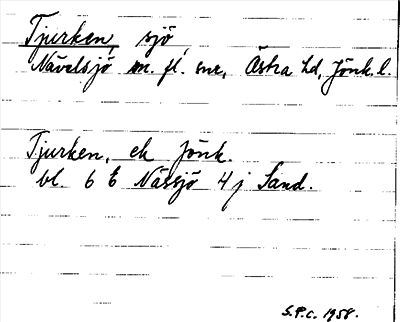 Tjurken, sjö
Nävelsjö m. fl. snr, Östra hd, Jönk. l.
Tjurken, ek Jönk.
bl. 6 E Nässjö 4 j Sand.
S.P.c. 1958.